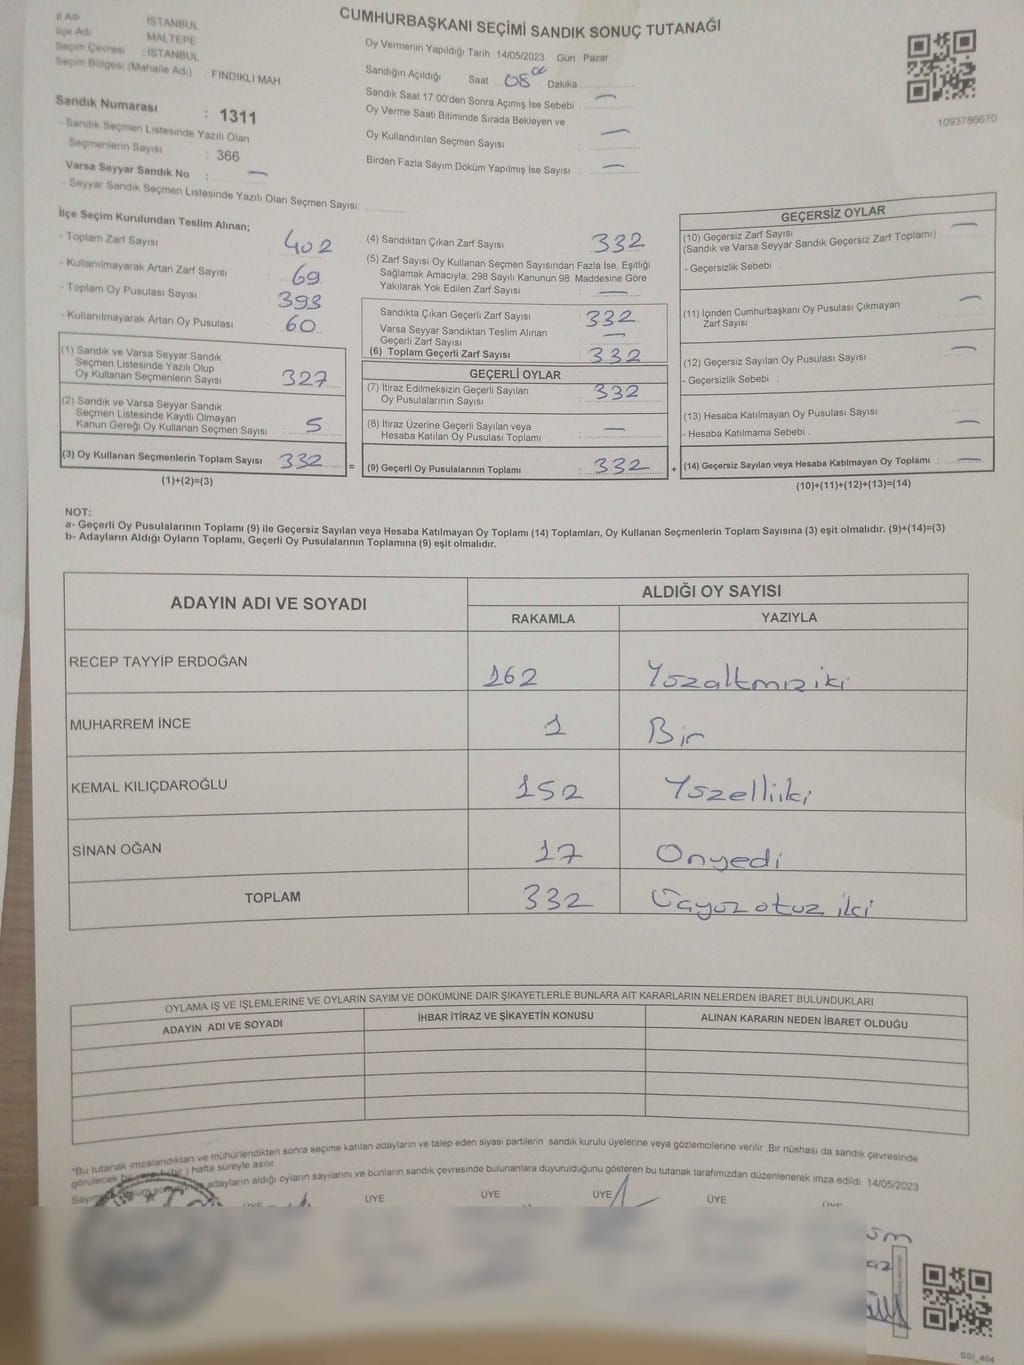 CUMHURBAŞKANI SEÇİMİ SANDIK SONUÇ TUTANAĞI
İl Adı İSTANBUL
İlçe Adı MALTEPE
Seçim Çevresi : İSTANBUL
Seçim Bölgesi (Mahalle Adı) : FINDIKLI MAH
Sandık Numarası : 1311
- Sandık Seçmen Listesinde Yazılı Olan
Seçmenlerin Sayısı : 366
Varsa Seyyar Sandık No : —
- Seyyar Sandık Seçmen Listesinde Yazılı Olan Seçmen Sayısı:
Oy Vermenin Yapıldığı Tarih : 14/05/2023 Gün : Pazar
Sandığın Açıldığı Saat 08 00 Dakika
Sandık Saat 17:00'den Sonra Açımış İse Sebebi : —
Oy Verme Saati Bitiminde Sırada Bekleyen ve
Oy Kullandırılan Seçmen Sayısı : —
Birden Fazla Sayım Döküm Yapılmış İse Sayısı : —
1093786670
İlçe Seçim Kurulundan Teslim Alınan;
- Toplam Zarf Sayısı 402
- Kullanılmayarak Artan Zarf Sayısı 69
- Toplam Oy Pusulası Sayısı 393
- Kullanılmayarak Artan Oy Pusulası 60
(1) Sandık ve Varsa Seyyar Sandık
Seçmen Listesinde Yazılı Olup
Oy Kullanan Seçmenlerin Sayısı 327
(2) Sandık ve Varsa Seyyar Sandık
Seçmen Listesinde Kayıtlı Olmayan
Kanun Gereği Oy Kullanan Seçmen Sayısı : 5
(3) Oy Kullanan Seçmenlerin Toplam Sayısı 332
(1)+(2)=(3)
=
(4) Sandıktan Çıkan Zarf Sayısı : 332
(5) Zarf Sayısı Oy Kullanan Seçmen Sayısından Fazla İse, Eşitliği
Sağlamak Amacıyla; 298 Sayılı Kanunun 98. Maddesine Göre
Yakılarak Yok Edilen Zarf Sayısı : —
Sandıkta Çıkan Geçerli Zarf Sayısı : 332
Varsa Seyyar Sandıktan Teslim Alınan
Geçerli Zarf Sayısı : —
(6) Toplam Geçerli Zarf Sayısı : 332
GEÇERLİ OYLAR
(7) İtiraz Edilmeksizin Geçerli Sayılan
Oy Pusulalarının Sayısı : 332
(8) İtiraz Üzerine Geçerli Sayılan veya
Hesaba Katılan Oy Pusulası Toplamı : —
(9) Geçerli Oy Pusulalarının Toplamı : 332
+
GEÇERSİZ OYLAR
(10) Geçersiz Zarf Sayısı —
(Sandık ve Varsa Seyyar Sandık Geçersiz Zarf Toplamı)
- Geçersizlik Sebebi :
(11) İçinden Cumhurbaşkanı Oy Pusulası Çıkmayan
Zarf Sayısı —
(12) Geçersiz Sayılan Oy Pusulası Sayısı —
- Geçersizlik Sebebi :
(13) Hesaba Katılmayan Oy Pusulası Sayısı —
- Hesaba Katılmama Sebebi :
(14) Geçersiz Sayılan veya Hesaba Katılmayan Oy Toplamı : —
(10)+(11)+(12)+(13)=(14)
NOT:
a- Geçerli Oy Pusulalarının Toplamı (9) ile Geçersiz Sayılan veya Hesaba Katılmayan Oy Toplamı (14) Toplamları, Oy Kullanan Seçmenlerin Toplam Sayısına (3) eşit olmalıdır. (9)+(14)=(3)
b- Adayların Aldığı Oyların Toplamı, Geçerli Oy Pusulalarının Toplamına (9) eşit olmalıdır.
ADAYIN ADI VE SOYADI ALDIĞI OY SAYISI
RAKAMLA YAZIYLA
RECEP TAYYİP ERDOĞAN 162 Yüzaltmışiki
MUHARREM İNCE 1 Bir
KEMAL KILIÇDAROĞLU 152 Yüzelliiki
SİNAN OĞAN 17 Onyedi
TOPLAM 332 Üçyüz otuz iki
OYLAMA İŞ VE İŞLEMLERİNE VE OYLARIN SAYIM VE DÖKÜMÜNE DAİR ŞİKAYETLERLE BUNLARA AİT KARARLARIN NELERDEN İBARET BULUNDUKLARI
ADAYIN ADI VE SOYADI İHBAR İTİRAZ VE ŞİKAYETİN KONUSU ALINAN KARARIN NEDEN İBARET OLDUĞU
"Bu tutanak imzalandıktan ve mühürlendikten sonra seçime katılan adayların ve talep eden siyasi partilerin sandık kurulu üyelerine veya gözlemcilerine verilir. Bir nüshası da sandık çevresinde
görülecek bir yere (bir) hafta süreyle asılır.
adayların aldığı oyların sayılarını ve bunların sandık çevresinde bulunanlara duyurulduğunu gösteren bu tutanak tarafımızdan düzenlenerek imza edildi. 14/05/2023
ÜYE ÜYE ÜYE ÜYE ÜYE ÜYE